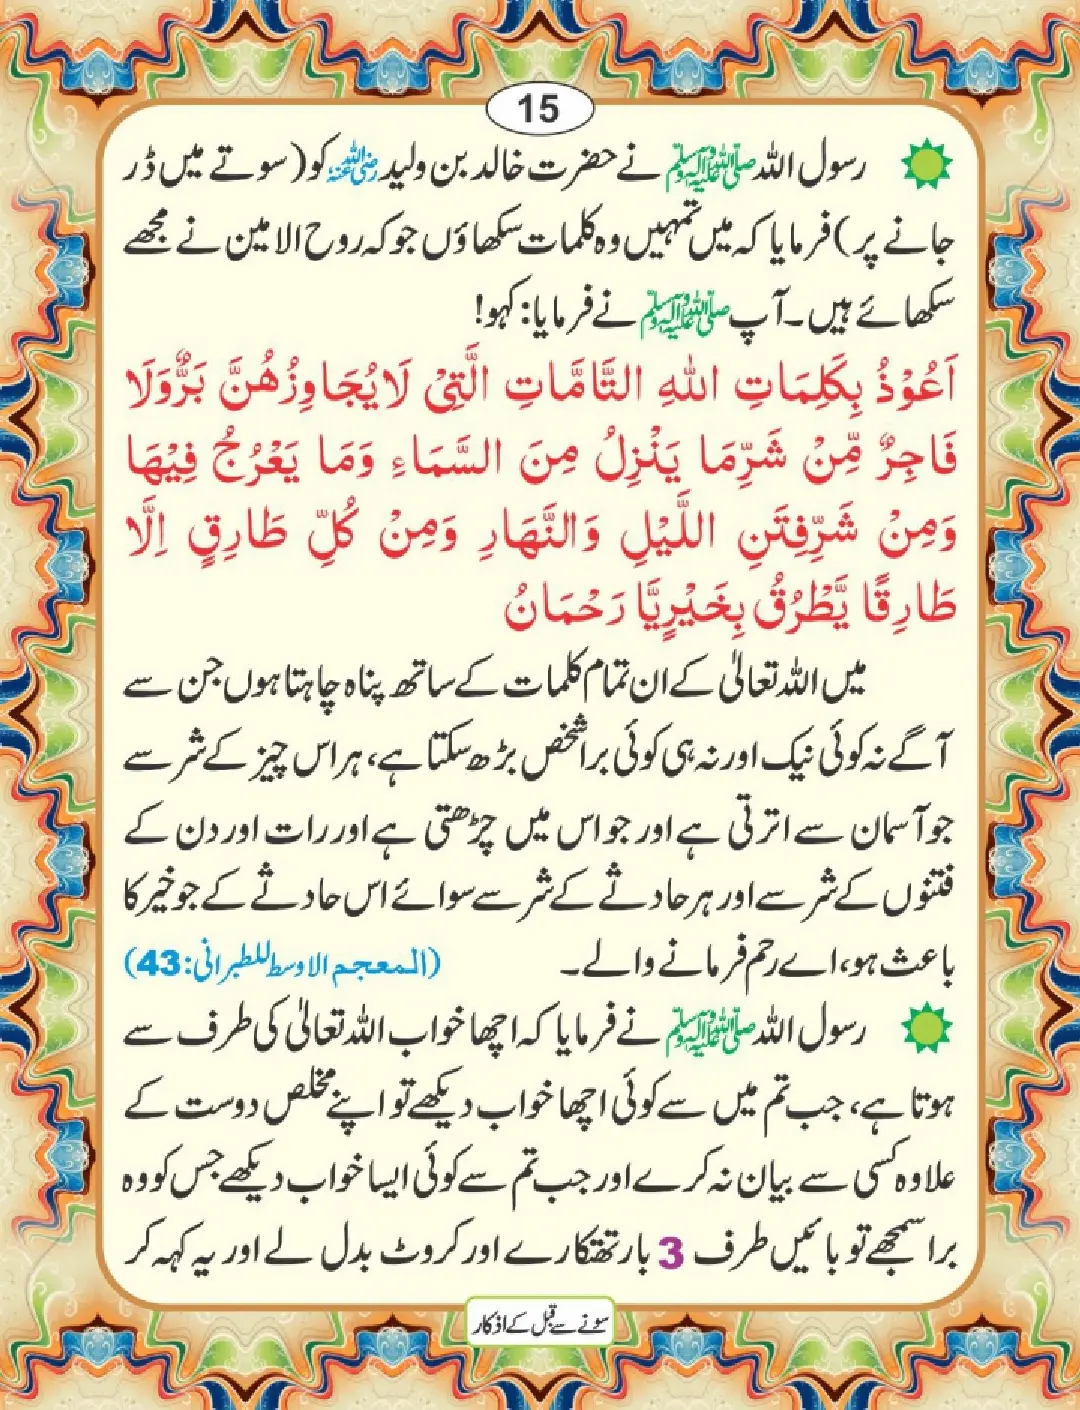 15
رسول اللہ صلی اللہ علیہ وآلہ وسلم نے حضرت خالد بن ولید رضی اللہ عنہ کو (سوتے میں ڈر
جانے پر) فرمایا کہ میں تمہیں وہ کلمات سکھاؤں جو کہ روح الامین نے مجھے
سکھائے ہیں۔ آپ صلی اللہ علیہ وآلہ وسلم نے فرمایا: کہو!
اَعُوْذُ بِكَلِمَاتِ اللهِ التَّامَّاتِ الَّتِیْ لَا یُجَاوِزُهُنَّ بَرٌّ وَّلَا
فَاجِرٌ مِّنْ شَرِّ مَا یَنْزِلُ مِنَ السَّمَاءِ وَمَا یَعْرُجُ فِیْهَا
وَمِنْ شَرِّ فِتَنِ اللَّیْلِ وَالنَّهَارِ وَمِنْ كُلِّ طَارِقٍ اِلَّا
طَارِقًا یَّطْرُقُ بِخَیْرٍ یَّا رَحْمَانُ
میں اللہ تعالیٰ کے ان تمام کلمات کے ساتھ پناہ چاہتا ہوں جن سے
آگے نہ کوئی نیک اور نہ ہی کوئی برا شخص بڑھ سکتا ہے، ہر اس چیز کے شر سے
جو آسمان سے اترتی ہے اور جو اس میں چڑھتی ہے اور رات اور دن کے
فتنوں کے شر سے اور ہر حادثے کے شر سے سوائے اس حادثے کے جو خیر کا
باعث ہو، اے رحم فرمانے والے۔ (المعجم الاوسط للطبرانی: 43)
رسول اللہ صلی اللہ علیہ وآلہ وسلم نے فرمایا کہ اچھا خواب اللہ تعالیٰ کی طرف سے
ہوتا ہے، جب تم میں سے کوئی اچھا خواب دیکھے تو اپنے مخلص دوست کے
علاوہ کسی سے بیان نہ کرے اور جب تم سے کوئی ایسا خواب دیکھے جس کو وہ
برا سمجھے تو بائیں طرف 3 بار تھتکارے اور کروٹ بدل لے اور یہ کہہ کر
سونے سے قبل کے اذکار